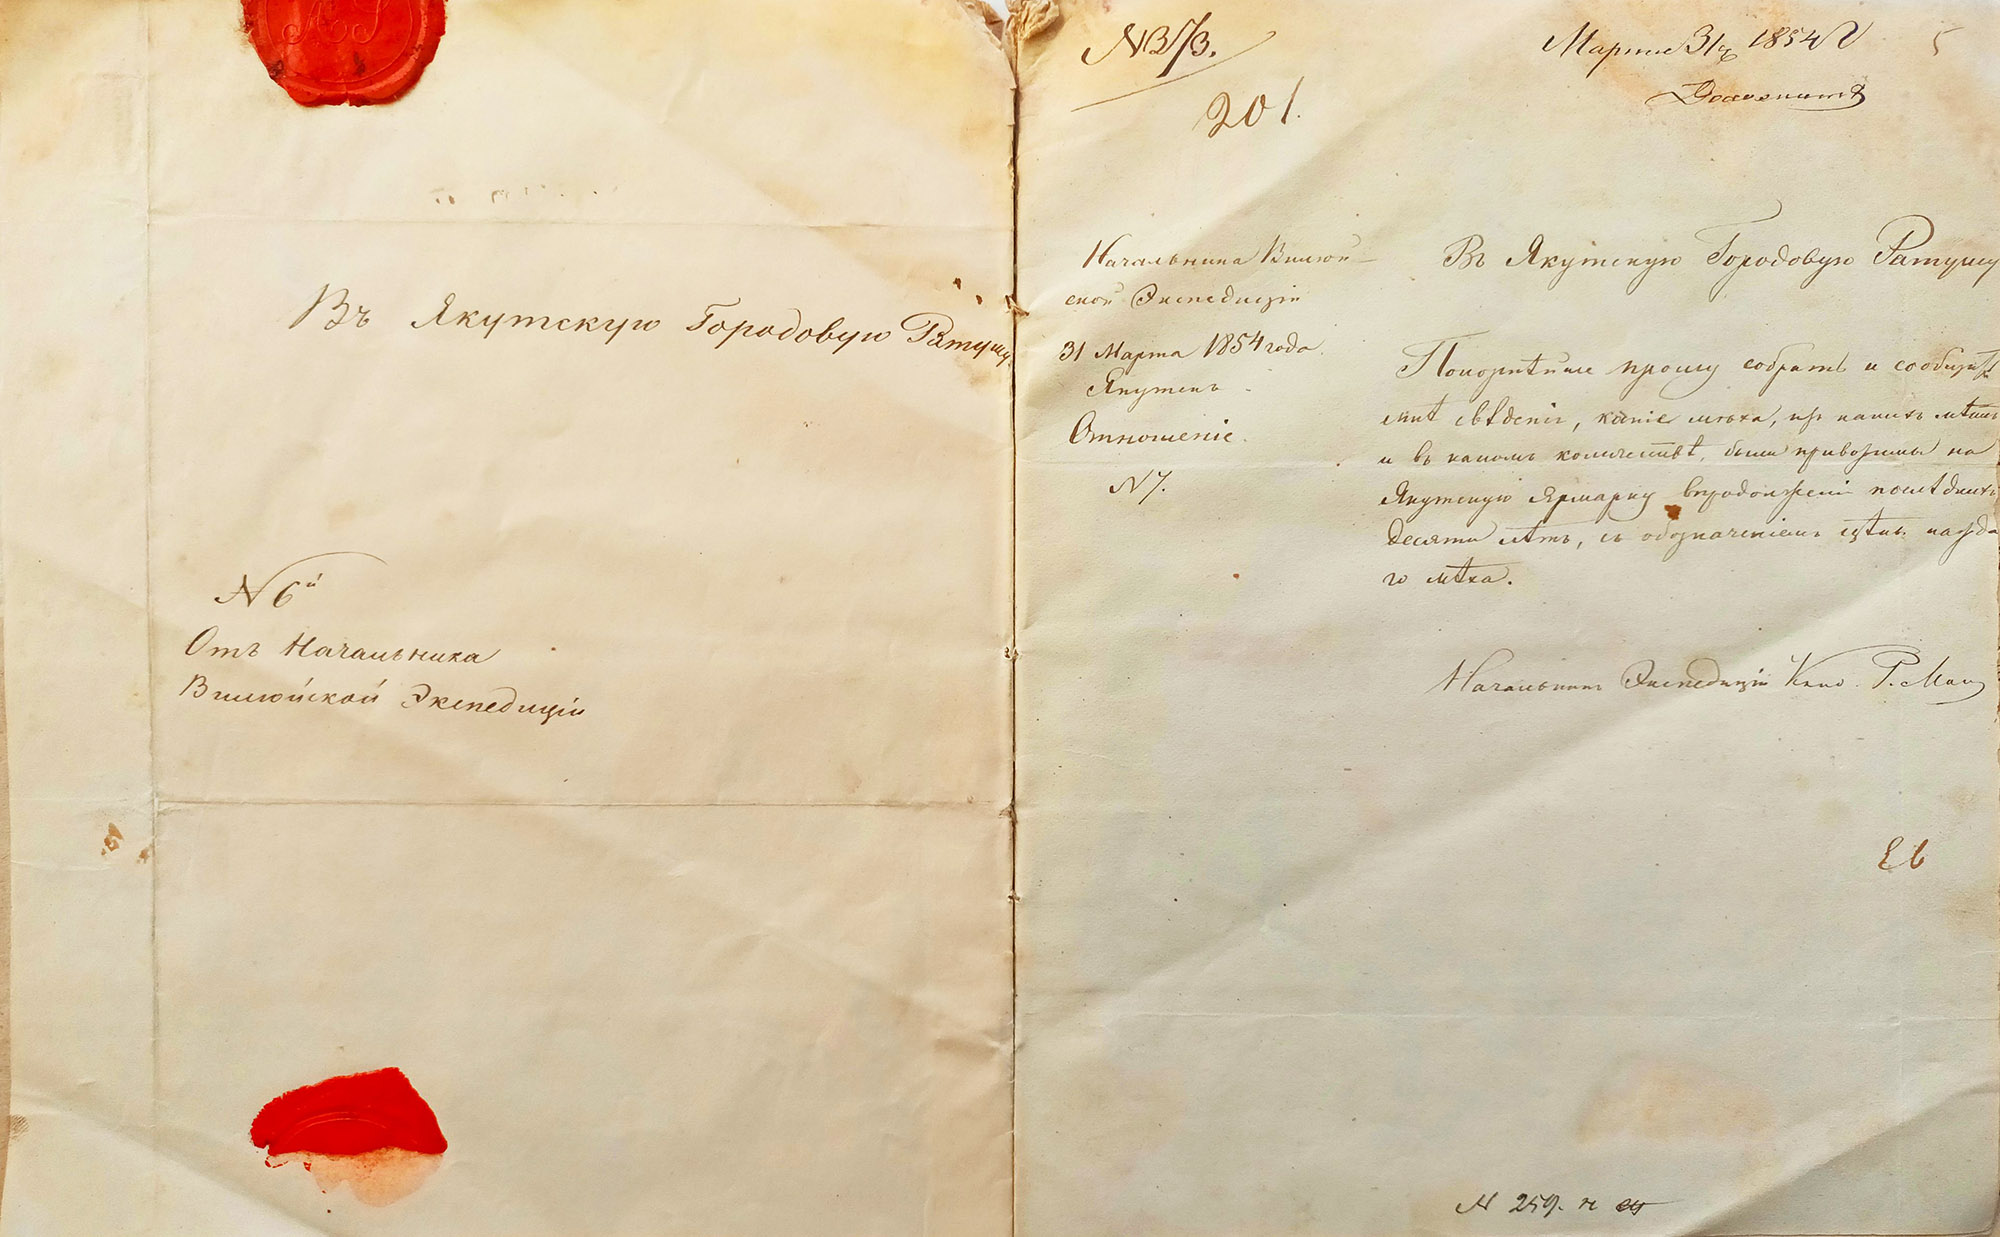 Въ Якутскую Городовую Ратушу
N 6й
Отъ Начальника
Вилюйской Экспедиціи
N 373.
Марта 31 1854 Г
5
201.
Начальника Вилюй-
ской Экспедиціи
31 Марта 1854 года.
Якутскъ.
Отношеніе.
N 7.
Въ Якутскую Городовую Ратушу
Покорнѣйше прошу собрать и сообщить
мнѣ свѣденіе, какіе мѣха, изъ какихъ мѣстъ
и въ какомъ количествѣ, были привозимы на
Якутскую Ярмарку впродолженіи послѣднихъ
десяти лѣтъ, съ обозначеніемъ цѣнъ каждо
го мѣха.
Начальникъ Экспедиціи Р. Маак
N 259.